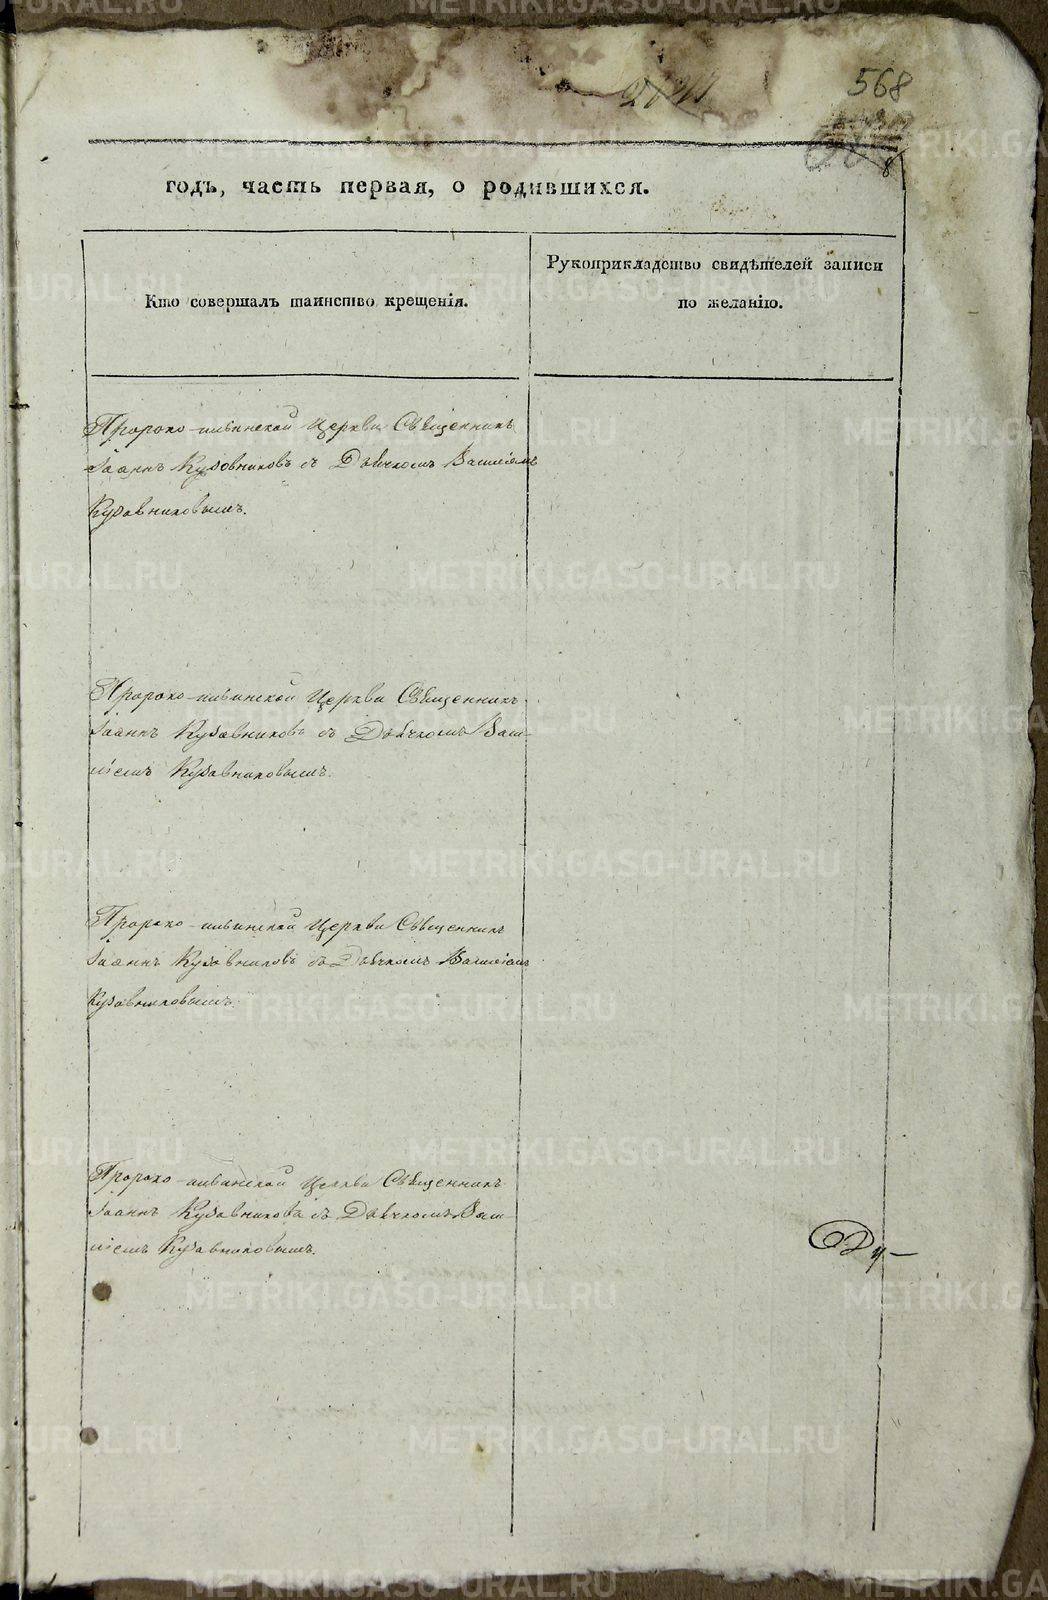 568
8
годъ, часть первая, о родившихся.
Кто совершалъ таинство крещенія.
Рукоприкладство свидѣтелей записи
по желанію.
Пророко-ильинской Церкви Священникъ
Іоаннъ Кузовниковъ съ Дьячкомъ Василіемъ
Кузовниковымъ.
Пророко-ильинской Церкви Священникъ
Іоаннъ Кузовниковъ съ Дьячкомъ Васи-
ліемъ Кузовниковымъ.
Пророко-ильинской Церкви Священникъ
Іоаннъ Кузовниковъ съ Дьячкомъ Василіемъ
Кузовниковымъ.
Пророко-ильинской Церкви Священникъ
Іоаннъ Кузовниковъ съ Дьячкомъ Васи-
ліемъ Кузовниковымъ.
METRIKI.GASO-URAL.RU